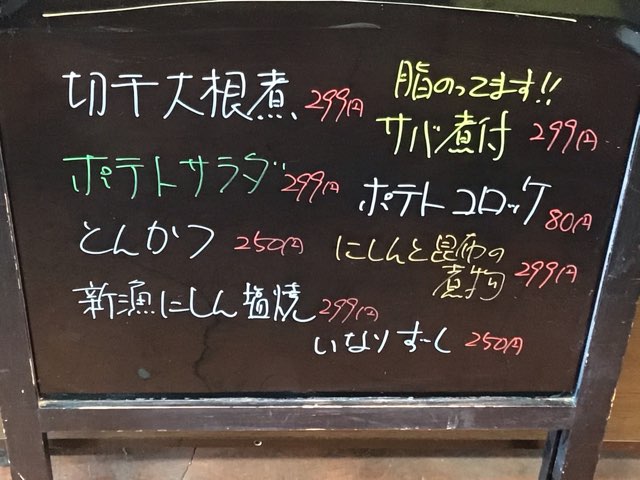 切干大根煮 299円
ポテトサラダ 299円
とんかつ 250円
新漁にしん塩焼 299円
脂のってます!!
サバ煮付 299円
ポテトコロッケ 80円
にしんと昆布の
煮物 299円
いなりずーし 250円